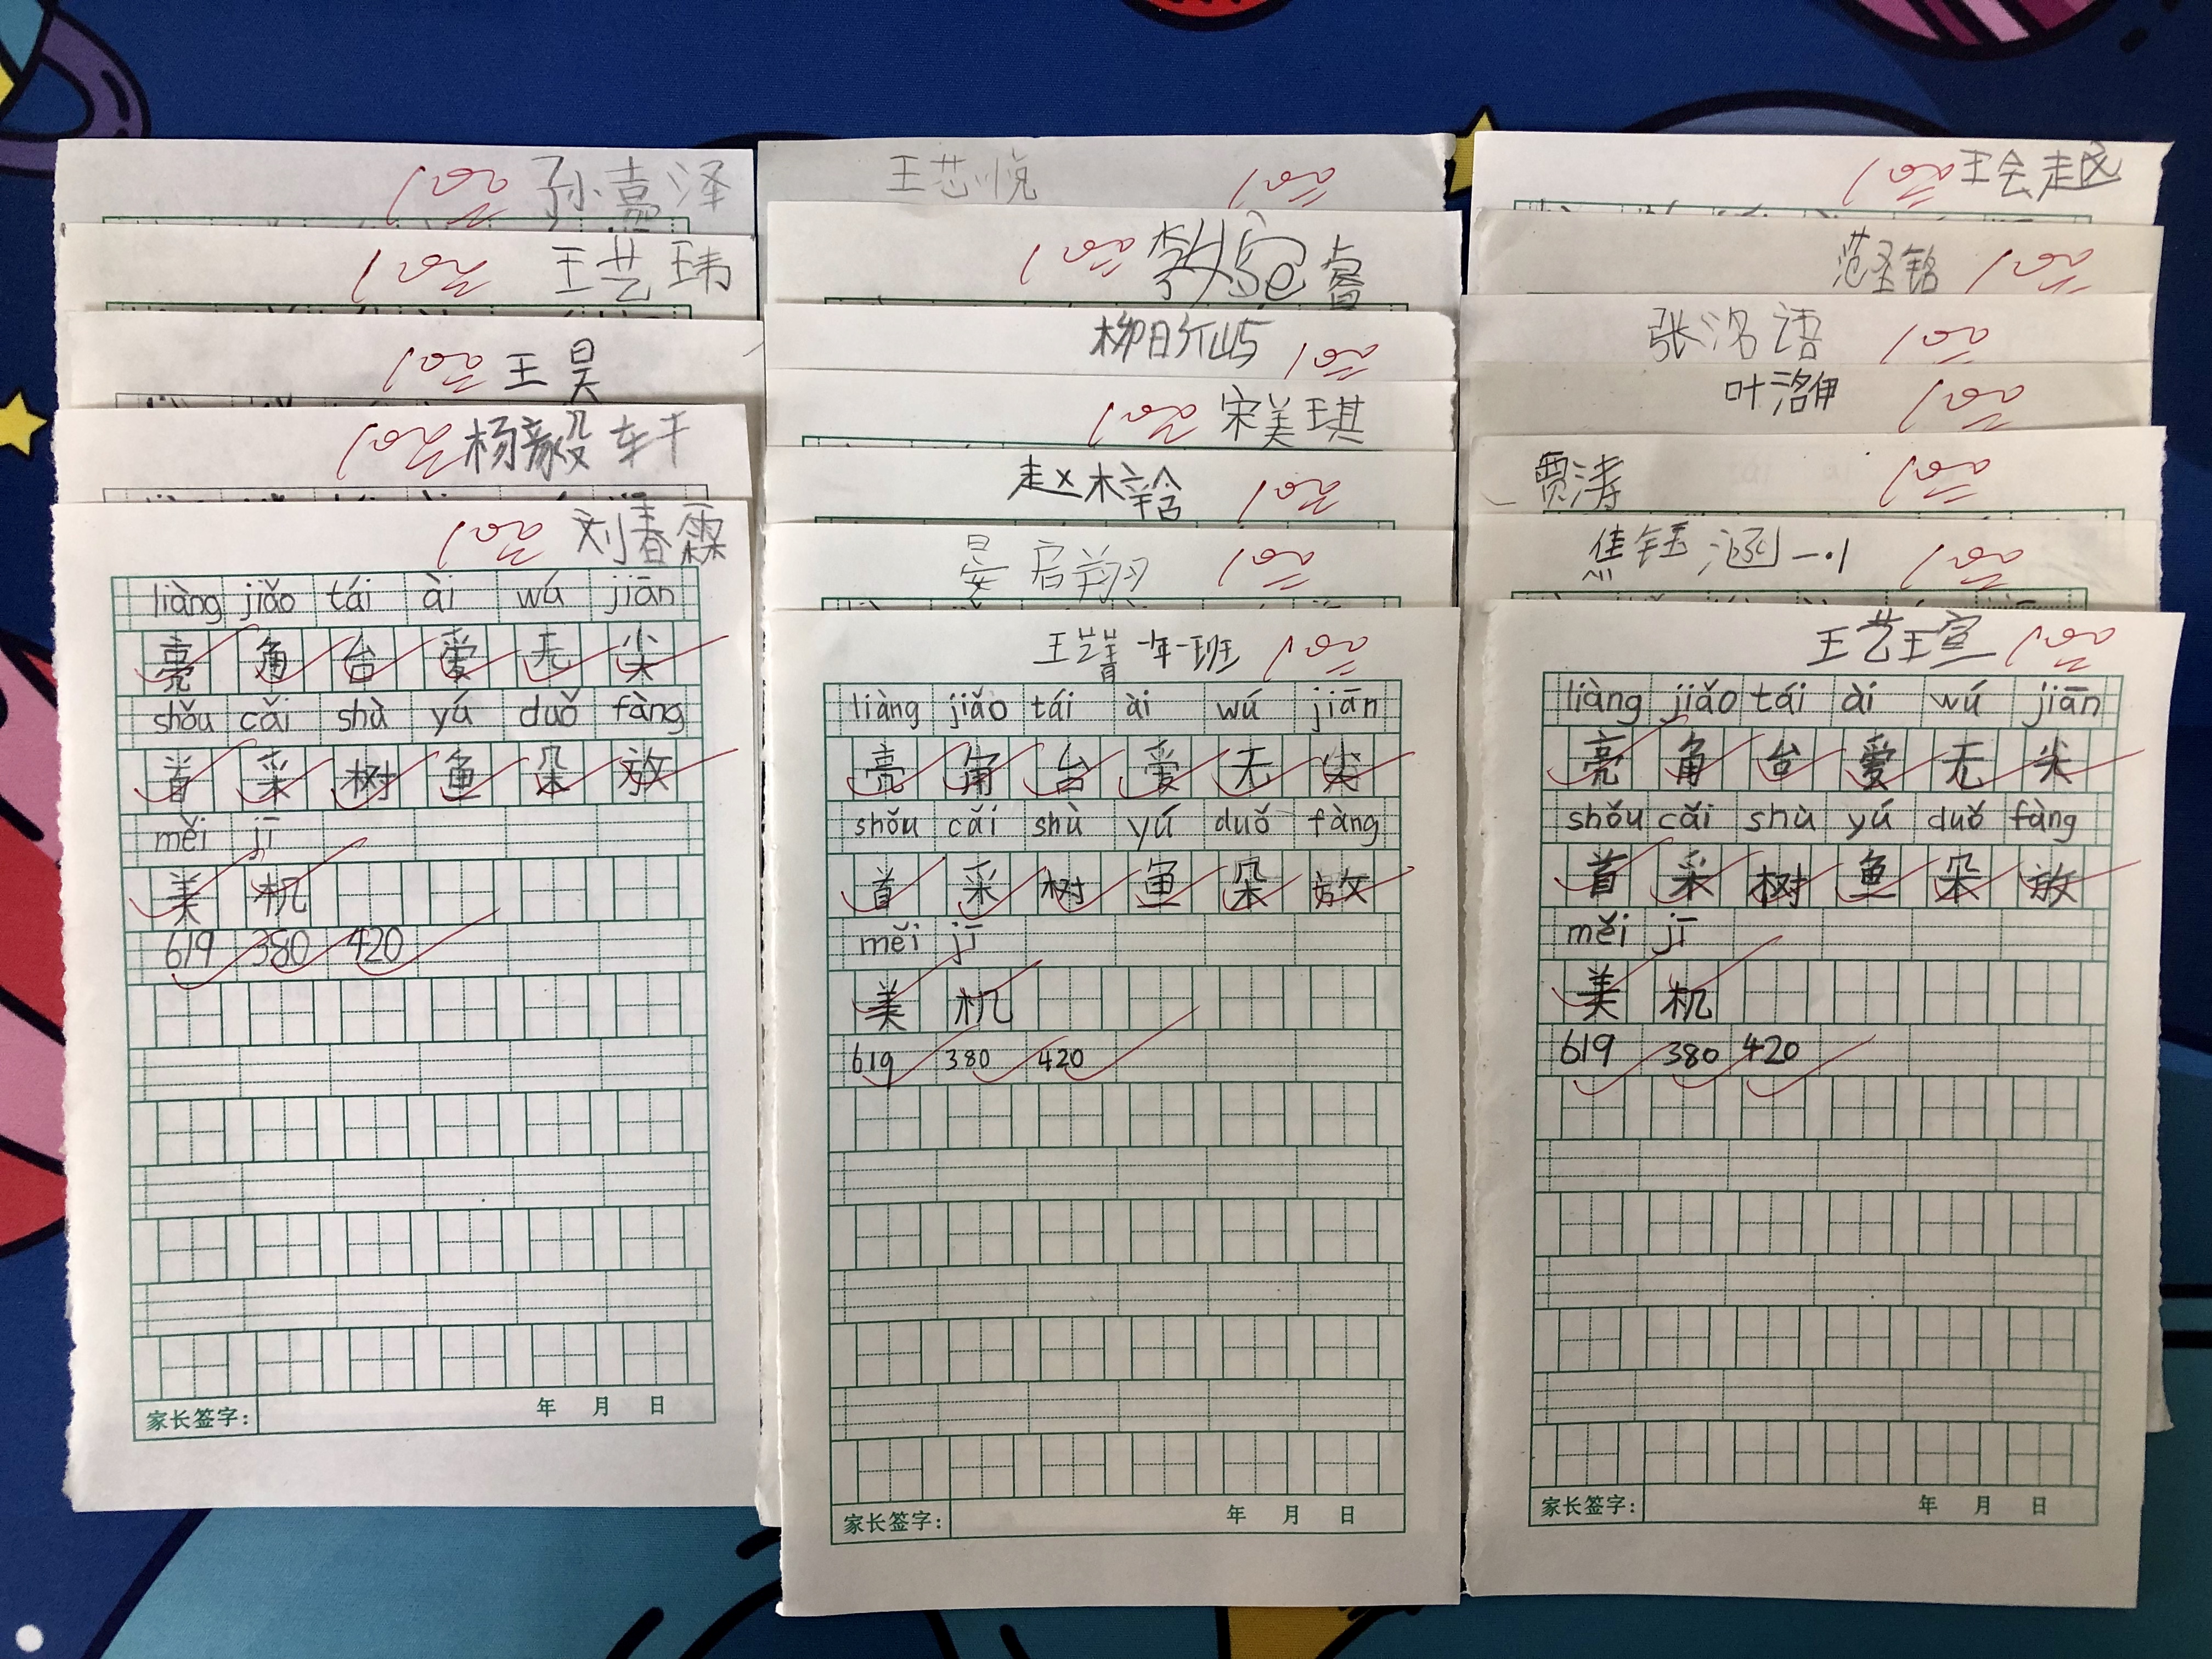 孙嘉泽
王艺玮
王昊
杨毅轩
刘春霖
liàng jiǎo tái ài wú jiān
亮 角 台 爱 无 尖
shǒu cǎi shù yú duǒ fàng
首 采 树 鱼 朵 放
měi jī
美 机
619 380 420
家长签字: 年 月 日
王芯悦
宋美琪
赵梓含
晏启翔
王艺菁 一年一班
liàng jiǎo tái ài wú jiān
亮 角 台 爱 无 尖
shǒu cǎi shù yú duǒ fàng
首 采 树 鱼 朵 放
měi jī
美 机
619 380 420
家长签字: 年 月 日
王会越
范圣铭
张洺语
叶洺伊
贾涛
焦钰涵 一.1
王艺瑄
liàng jiǎo tái ài wú jiān
亮 角 台 爱 无 尖
shǒu cǎi shù yú duǒ fàng
首 采 树 鱼 朵 放
měi jī
美 机
619 380 420
家长签字: 年 月 日